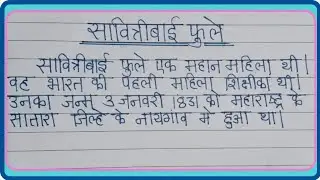 सावित्रीबाई फुले
सावित्रीबाई फुले एक महान महिला थी।
वह भारत की पहली महिला शिक्षीका थी।
उनका जन्म 3 जनवरी 1831 को महाराष्ट्र के
सातारा जिल्हे के नायगांव में हुआ था।